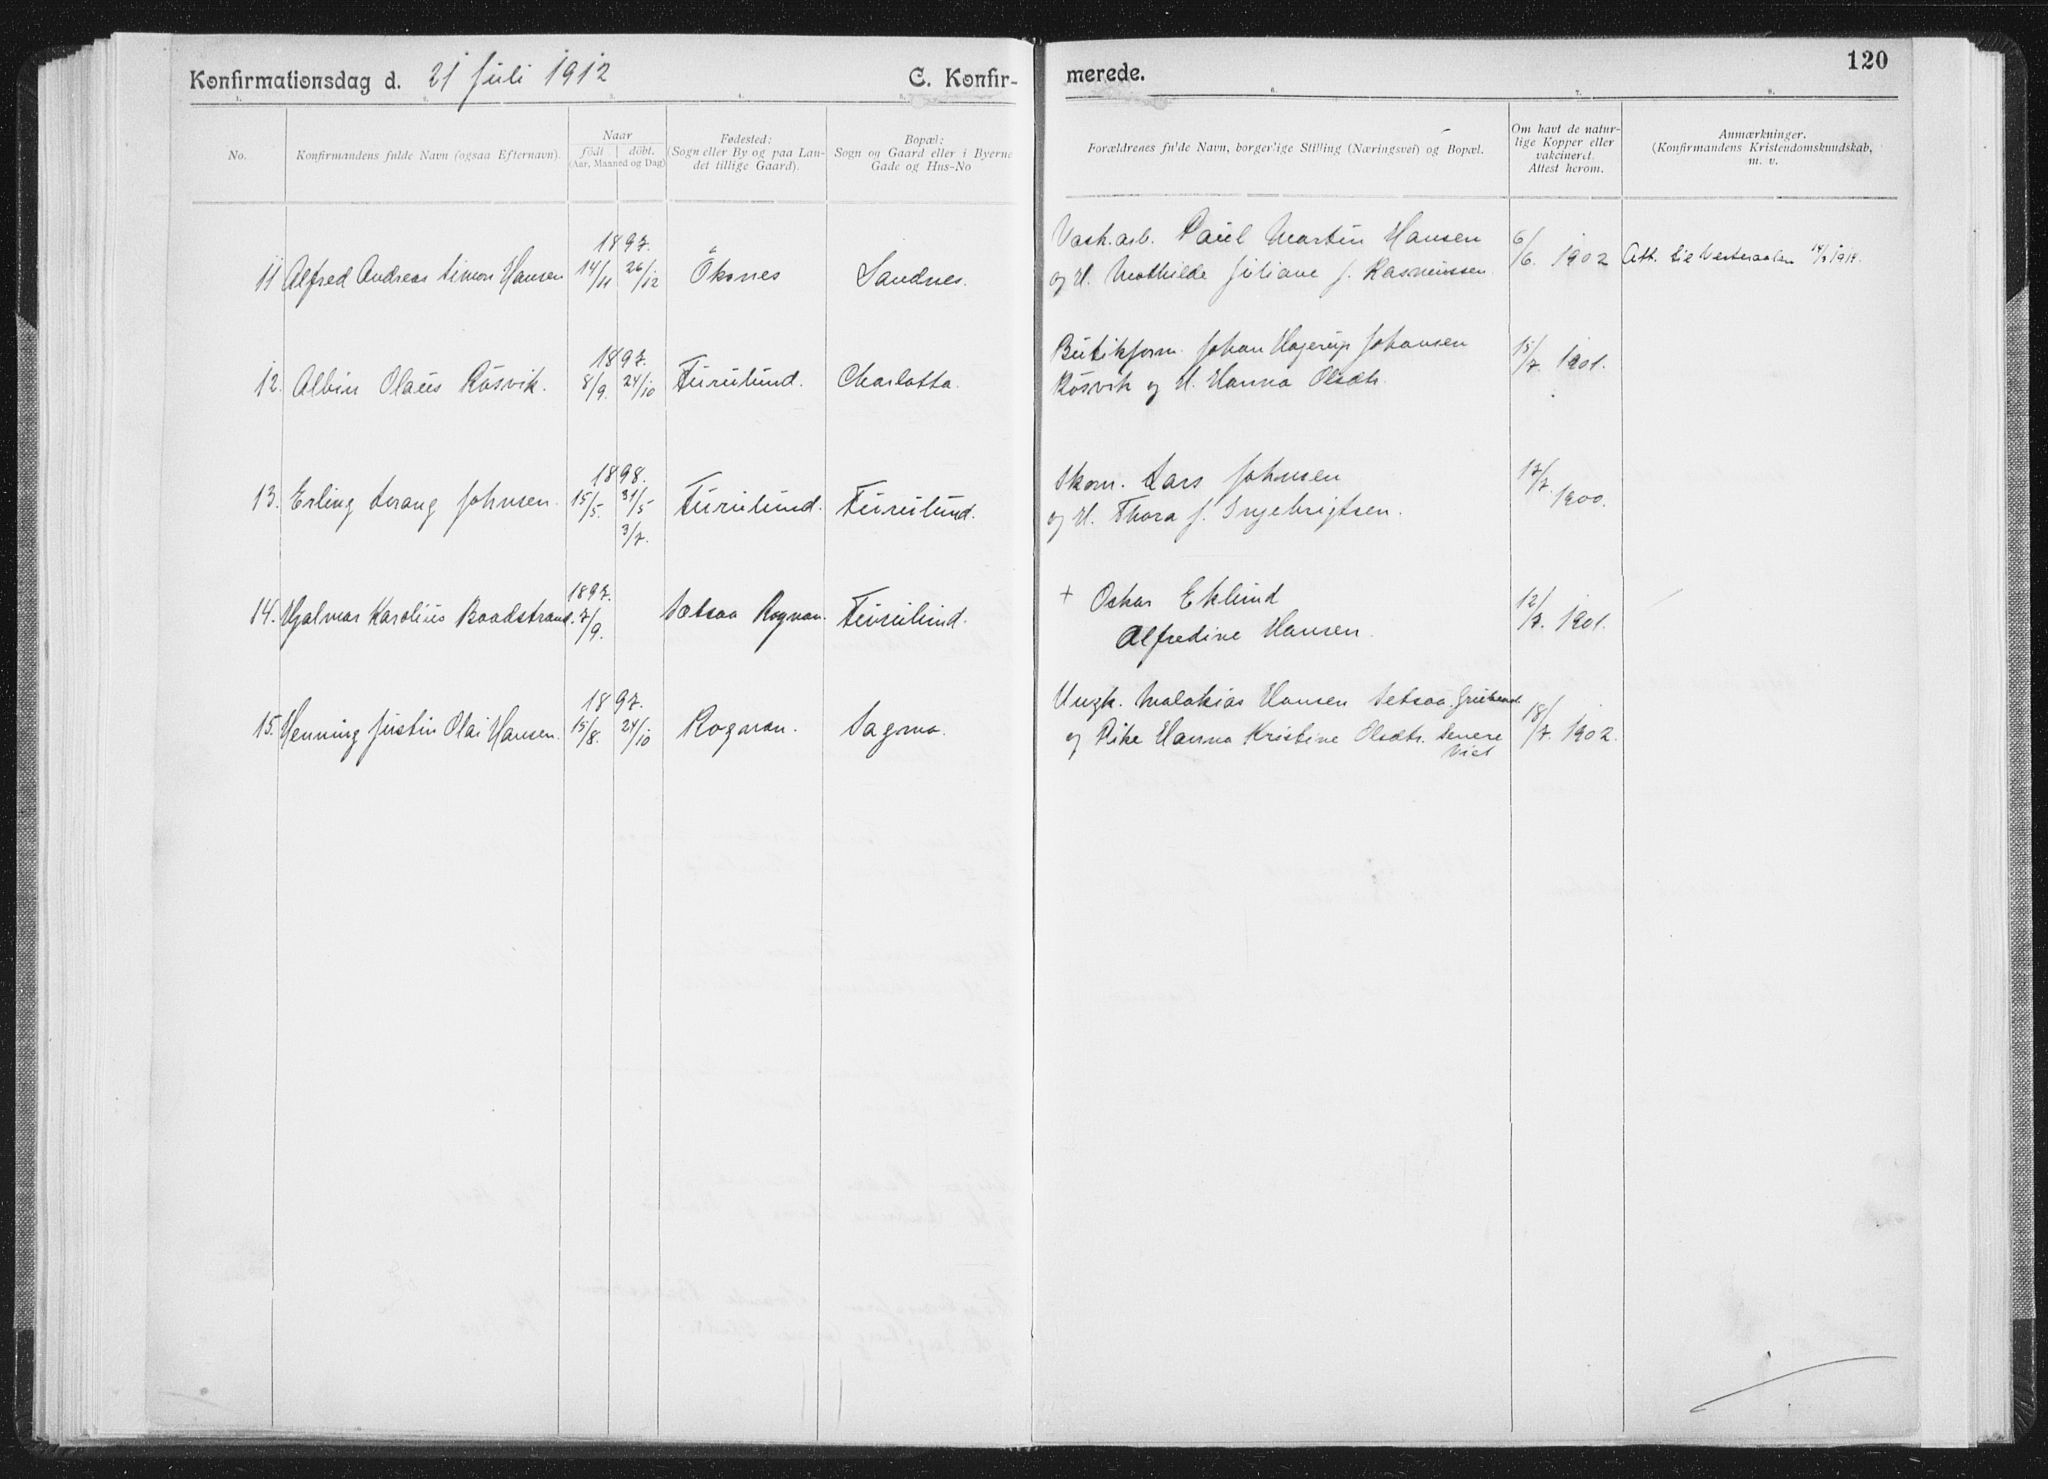 Konfirmationsdag d. 21 Juli 1912
C. Konfir-
merede.
120
1. 2. 3. 4. 5. 6. 7. 8.
No.
Konfirmandens fulde Navn (ogsaa Efternavn).
Naar
födt döbt.
(Aar, Maaned og Dag)
Fødested:
(Sogn eller By og paa Lan-
det tillige Gaard).
Bopæl:
Sogn og Gaard eller i Byerne
Gade og Hus-No
Forældrenes fulde Navn, borgerlige Stilling (Næringsvei) og Bopæl.
Om havt de natur-
lige Kopper eller
vakcineret.
Attest herom.
Anmærkninger.
(Konfirmandens Kristendomskundskab,
m. v.
1897.
11 Alfred Andreas Simon Hansen 14/11 26/12 Öksnes Sandnes.
Vask.arb. Paul Martin Hansen
og H. Mathilde Juliane f. Rasmussen
6/6. 1902
Att. til Vesteraalen
1897.
12. Albin Olaus Røsvik. 8/9. 24/10 Furulund. Charlotta.
Butikform. Johan Hagerup Johansen
Røsvik og H. Hanna Olsdtr.
15/7. 1901.
1898.
13. Erling Lorang Johnsen. 15/5. 31/5 Furulund. Furulund.
3/7.
Skom. Lars Johnsen
og H. Thora f. Ingebrigtsen.
17/7. 1900.
1897.
14. Hjalmar Karolius Baadstrand. 7/9. Sætsaa Rognan. Furulund.
+ Oskar Eklund
Alfredine Hansen.
12/7. 1901.
1897.
15. Henning Justin Olai Hansen. 15/8. 24/10 Rognan. Sagmo.
Ungk. Malakias Hansen Setsaa
og Pike Hanna Kristine Olsdtr. senere
viet
18/7. 1902.